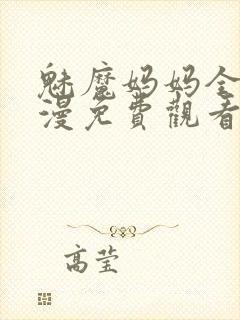 魅魔妈妈全
漫免費觀看
高莹